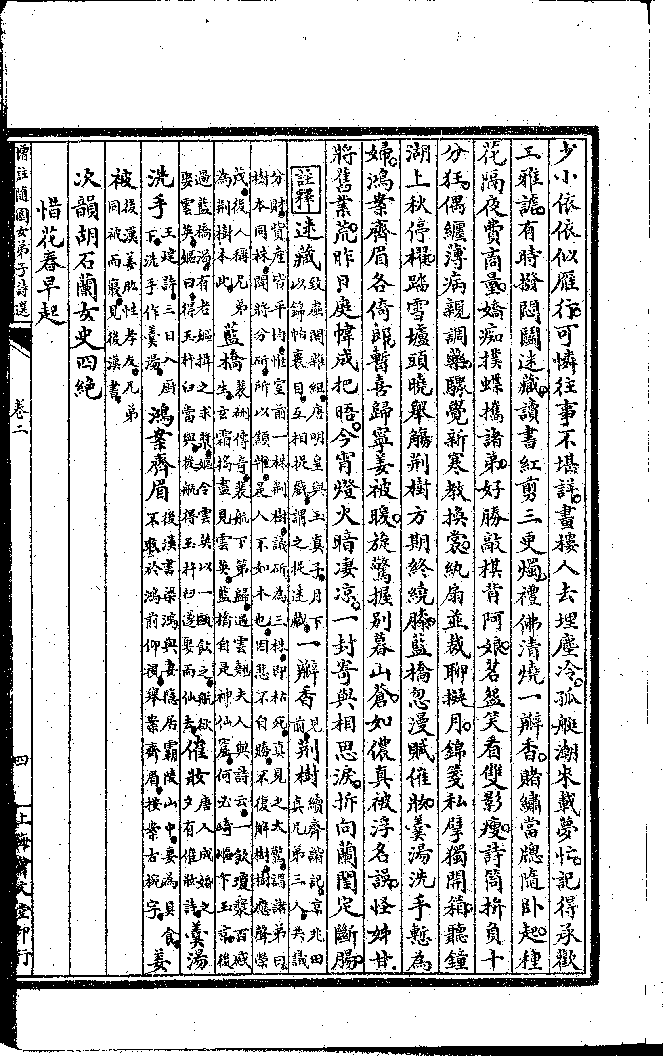 少小依依似雁行可憐往事不堪詳畫樓人去埋塵冷孤艇潮來載夢忙記得承歡
工雅謔有時撥悶鬭迷藏讀書紅剪三更燭禮佛清燒一瓣香賭繡當牕隨臥起種
花隔夜費商量嬌痴撲蝶攜諸弟好勝敲棋背阿娘茗盌笑看雙影瘦詩筒拚負十
分狂偶纏薄病親調藥驟覺新寒教換裳紈扇並裁聊擬月錦箋私擘獨開箱聽鐘
湖上秋停櫂踏雪壚頭曉舉觴荆樹方期終繞膝藍橋忽漫賦催妝羹湯洗手慙為
婦鴻案齊眉各倚郎暫喜歸寧姜被暖旋驚握别暮山蒼如儂真被浮名誤怪姊甘
將舊業荒昨日庭幃成把晤今宵燈火暗凄凉一封寄與相思淚拆向蘭閨定斷腸
註釋 迷藏 致虛閣雜組唐明皇與玉真子月下
以錦帕裹目互相捉戲謂之捉迷藏 一瓣香 見前 荆樹 續齊諧記京兆田
真兄弟三人共議
分財貲產皆平均惟堂前一株荆樹議斫為三株即枯死真見之大驚謂諸弟曰
樹本同株聞將分斫所以顦顇是人不如木也因悲不自勝不復解樹樹應聲榮
茂後人稱兄弟
為荆樹本此 藍橋 裴硎傳奇裴航下第歸遇雲翹夫人與詩云一飲瓊漿百感
生玄霜搗盡見雲英藍橋自是神仙窟何必崎嶇上玉京後
過藍橋渴有老嫗揖之求漿嫗令雲英以一甌飲之航欲
娶雲英嫗曰得玉杵臼當與後航得玉杵臼遂娶而仙去 催妝 唐人成婚之
夕有催妝詩 羹湯
洗手 王建詩三日入厨
下洗手作羹湯 鴻案齊眉 後漢書梁鴻與妻隱居霸陵山中妻為具食
不敢於鴻前仰視舉案齊眉按案古椀字 姜
被 後漢姜肱性孝友兄弟
同被而寢見後漢書
次韻胡石蘭女史四絶
惜花春早起
增註隨園女弟子詩選
卷二
四
上海會文堂印行